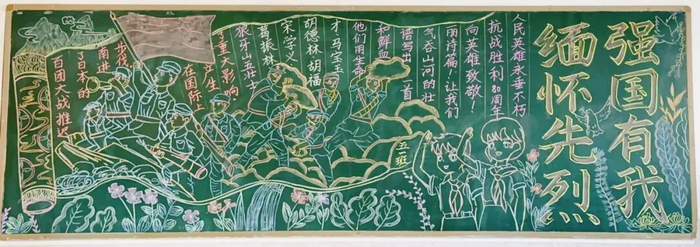 百团大战推迟
了日本的
南进
步伐
在国际
产生
了重大影响。
狼牙山五壮士
葛振林、
宋学义、
胡德林、胡福
才、马宝玉
他们用生命
和鲜血
谱写出一首
气吞山河的壮
丽诗篇!让我们
向英雄致敬!
抗战胜利80周年
人民英雄永垂不朽
五二班
缅怀先烈
强国有我